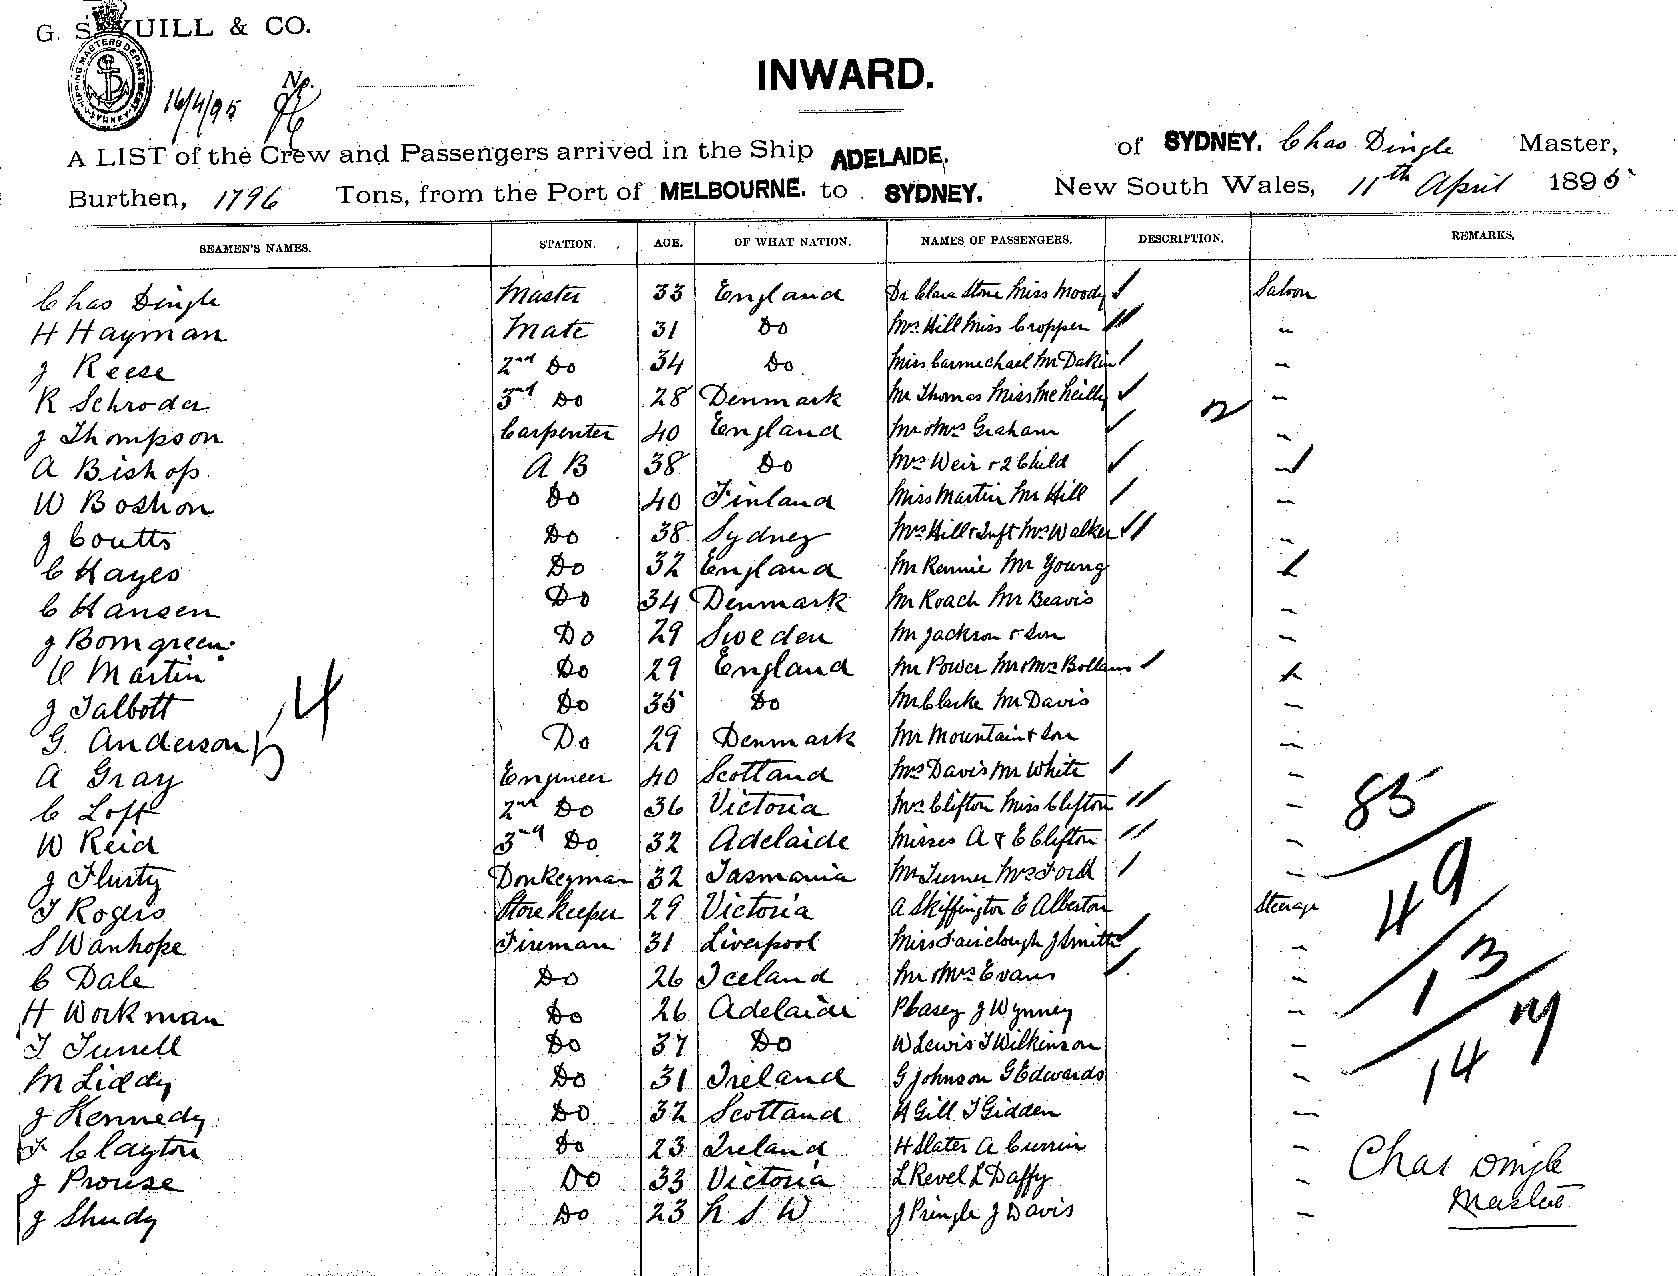 G. S. YUILL & CO.
SHIPPING MASTERS DEPARTMENT SYDNEY
16/4/95 No.
INWARD.
A LIST of the Crew and Passengers arrived in the Ship ADELAIDE, of SYDNEY. Chas Dingle Master,
Burthen, 1796 Tons, from the Port of MELBOURNE. to SYDNEY. New South Wales, 11th April 1895
SEAMEN'S NAMES. STATION. AGE. OF WHAT NATION. NAMES OF PASSENGERS. DESCRIPTION. REMARKS.
Chas Dingle Master 33 England Dr Clara Stone Miss Moody Saloon
H Hayman Mate 31 Do Mrs Hill Miss Cropper "
J Reese 2nd Do 34 Do Miss Carmechael Mr Dakin "
R Schroder 3rd Do 28 Denmark Mr Thomas Miss McNeilly "
J Thompson Carpenter 40 England Mr & Mrs Graham "
A Bishop A B 38 Do Mrs Weir & 2 Child "
W Boshon Do 40 Finland Miss Martin Mr Hill "
J Coutts Do 38 Sydney Mrs Hill & Inft Mrs Walker "
C Hayes Do 32 England Mr Rennie Mr Young "
C Hansen Do 34 Denmark Mr Roach Mr Beavis "
J Bomgreen Do 29 Sweden Mr Jackson & Son "
C Martin Do 29 England Mr Power Mr & Mrs "
J Talbott Do 35 Do Mr Clarke Mr Davis "
G. Anderson Do 29 Denmark Mr Mountain & Son "
14
A Gray Engineer 40 Scotland Mrs Davis Mr White "
C Loft 2nd Do 36 Victoria Mrs Clifton Miss Clifton " 85
W Reid 3rd Do 32 Adelaide Misses A & E Clifton "
J Flurty Donkeyman 32 Tasmania Mr Turner Mrs Ford "
T Rogers Storekeeper 29 Victoria A Skiffington E Alberton Steerage 49
S Wanhope Fireman 31 Liverpool Miss Fairclough J Smith "
C Dale Do 26 Iceland Mr & Mrs Evans " 13
H Workman Do 26 Adelaide P Casey J Wynney "
T Turrell Do 37 Do W Lewis T Wilkinson "
M Liddy Do 31 Ireland G Johnson G Edwards " 14
J Kennedy Do 32 Scotland H Gill T Gidden "
T Clayton Do 23 Ireland H Slater A Currin "
J Prouse Do 33 Victoria L Revel L Daffy " Chas Dingle
J Shudy Do 23 N S W J Pringle J Davis " Master